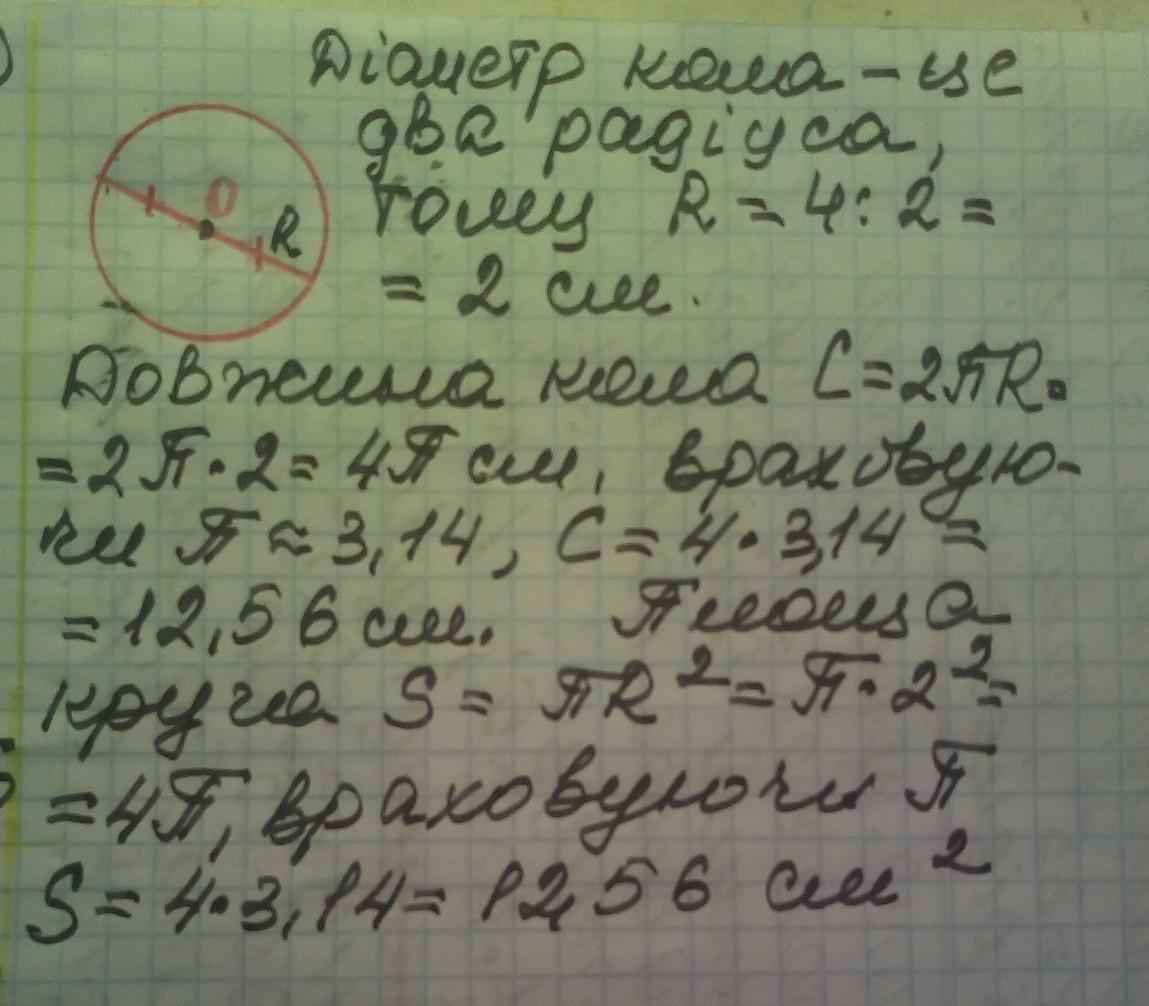 Діаметр кола – це
два радіуса,
O
тому R = 4 : 2 =
R
= 2 см.
Довжина кола C = 2πR =
= 2π · 2 = 4π см, враховую-
чи π ≈ 3,14, C = 4 · 3,14 =
= 12,56 см. Площа
круга S = πR² = π · 2² =
= 4π, враховуючи π
S = 4 · 3,14 = 12,56 см²